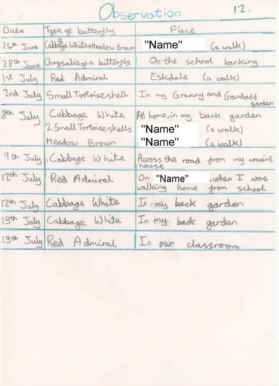 Observation 12.
Date Type of butterfly Place
26th June Cabbage White Meadow Brown "Name" (a walk)
28th June butterfly On the school banking
1st July Red Admiral Eskdale (a walk)
2nd July Small Tortoiseshell In my Granny and Grandads
garden
8th July Cabbage White At home, in my back garden
2 Small Tortoiseshells "Name" (a walk)
Meadow Brown "Name" (a walk)
9th July Cabbage White Across the road from my
house
12th July Red Admiral On "Name" when I was
walking home from school
12th July Cabbage White In my back garden
15th July Cabbage White In my back garden
Red Admiral In our classroom